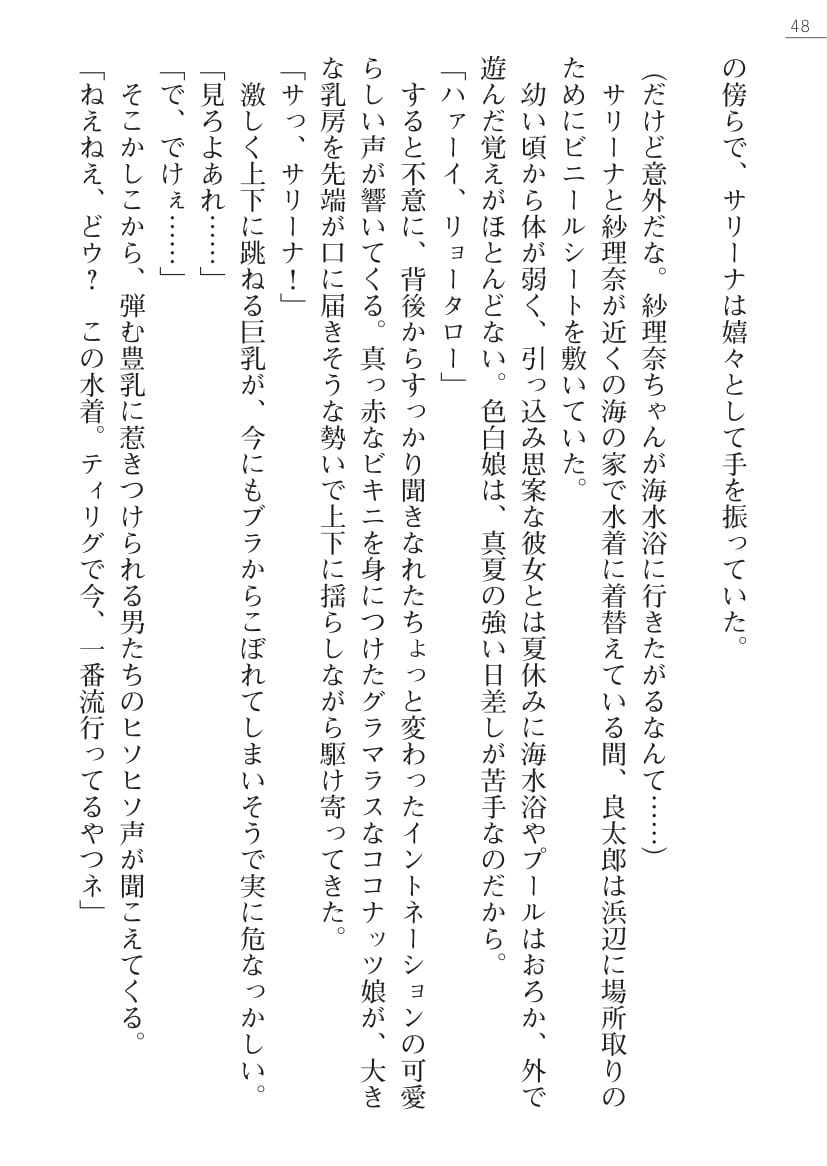 48
の傍らで、サリーナは嬉々として手を振っていた。
（だけど意外だな。紗理奈ちゃんが海水浴に行きたがるなんて……）
サリーナと紗理奈が近くの海の家で水着に着替えている間、良太郎は浜辺に場所取りの
ためにビニールシートを敷いていた。
幼い頃から体が弱く、引っ込み思案な彼女とは夏休みに海水浴やプールはおろか、外で
遊んだ覚えがほとんどない。色白娘は、真夏の強い日差しが苦手なのだから。
「ハァーイ、リョータロー」
すると不意に、背後からすっかり聞きなれたちょっと変わったイントネーションの可愛
らしい声が響いてくる。真っ赤なビキニを身につけたグラマラスなココナッツ娘が、大き
な乳房を先端が口に届きそうな勢いで上下に揺らしながら駆け寄ってきた。
「サっ、サリーナ！」
激しく上下に跳ねる巨乳が、今にもブラからこぼれてしまいそうで実に危なっかしい。
「見ろよあれ……」
「で、でけぇ……」
そこかしこから、弾む豊乳に惹きつけられる男たちのヒソヒソ声が聞こえてくる。
「ねえねえ、どウ？　この水着。ティリグで今、一番流行ってるやつネ」